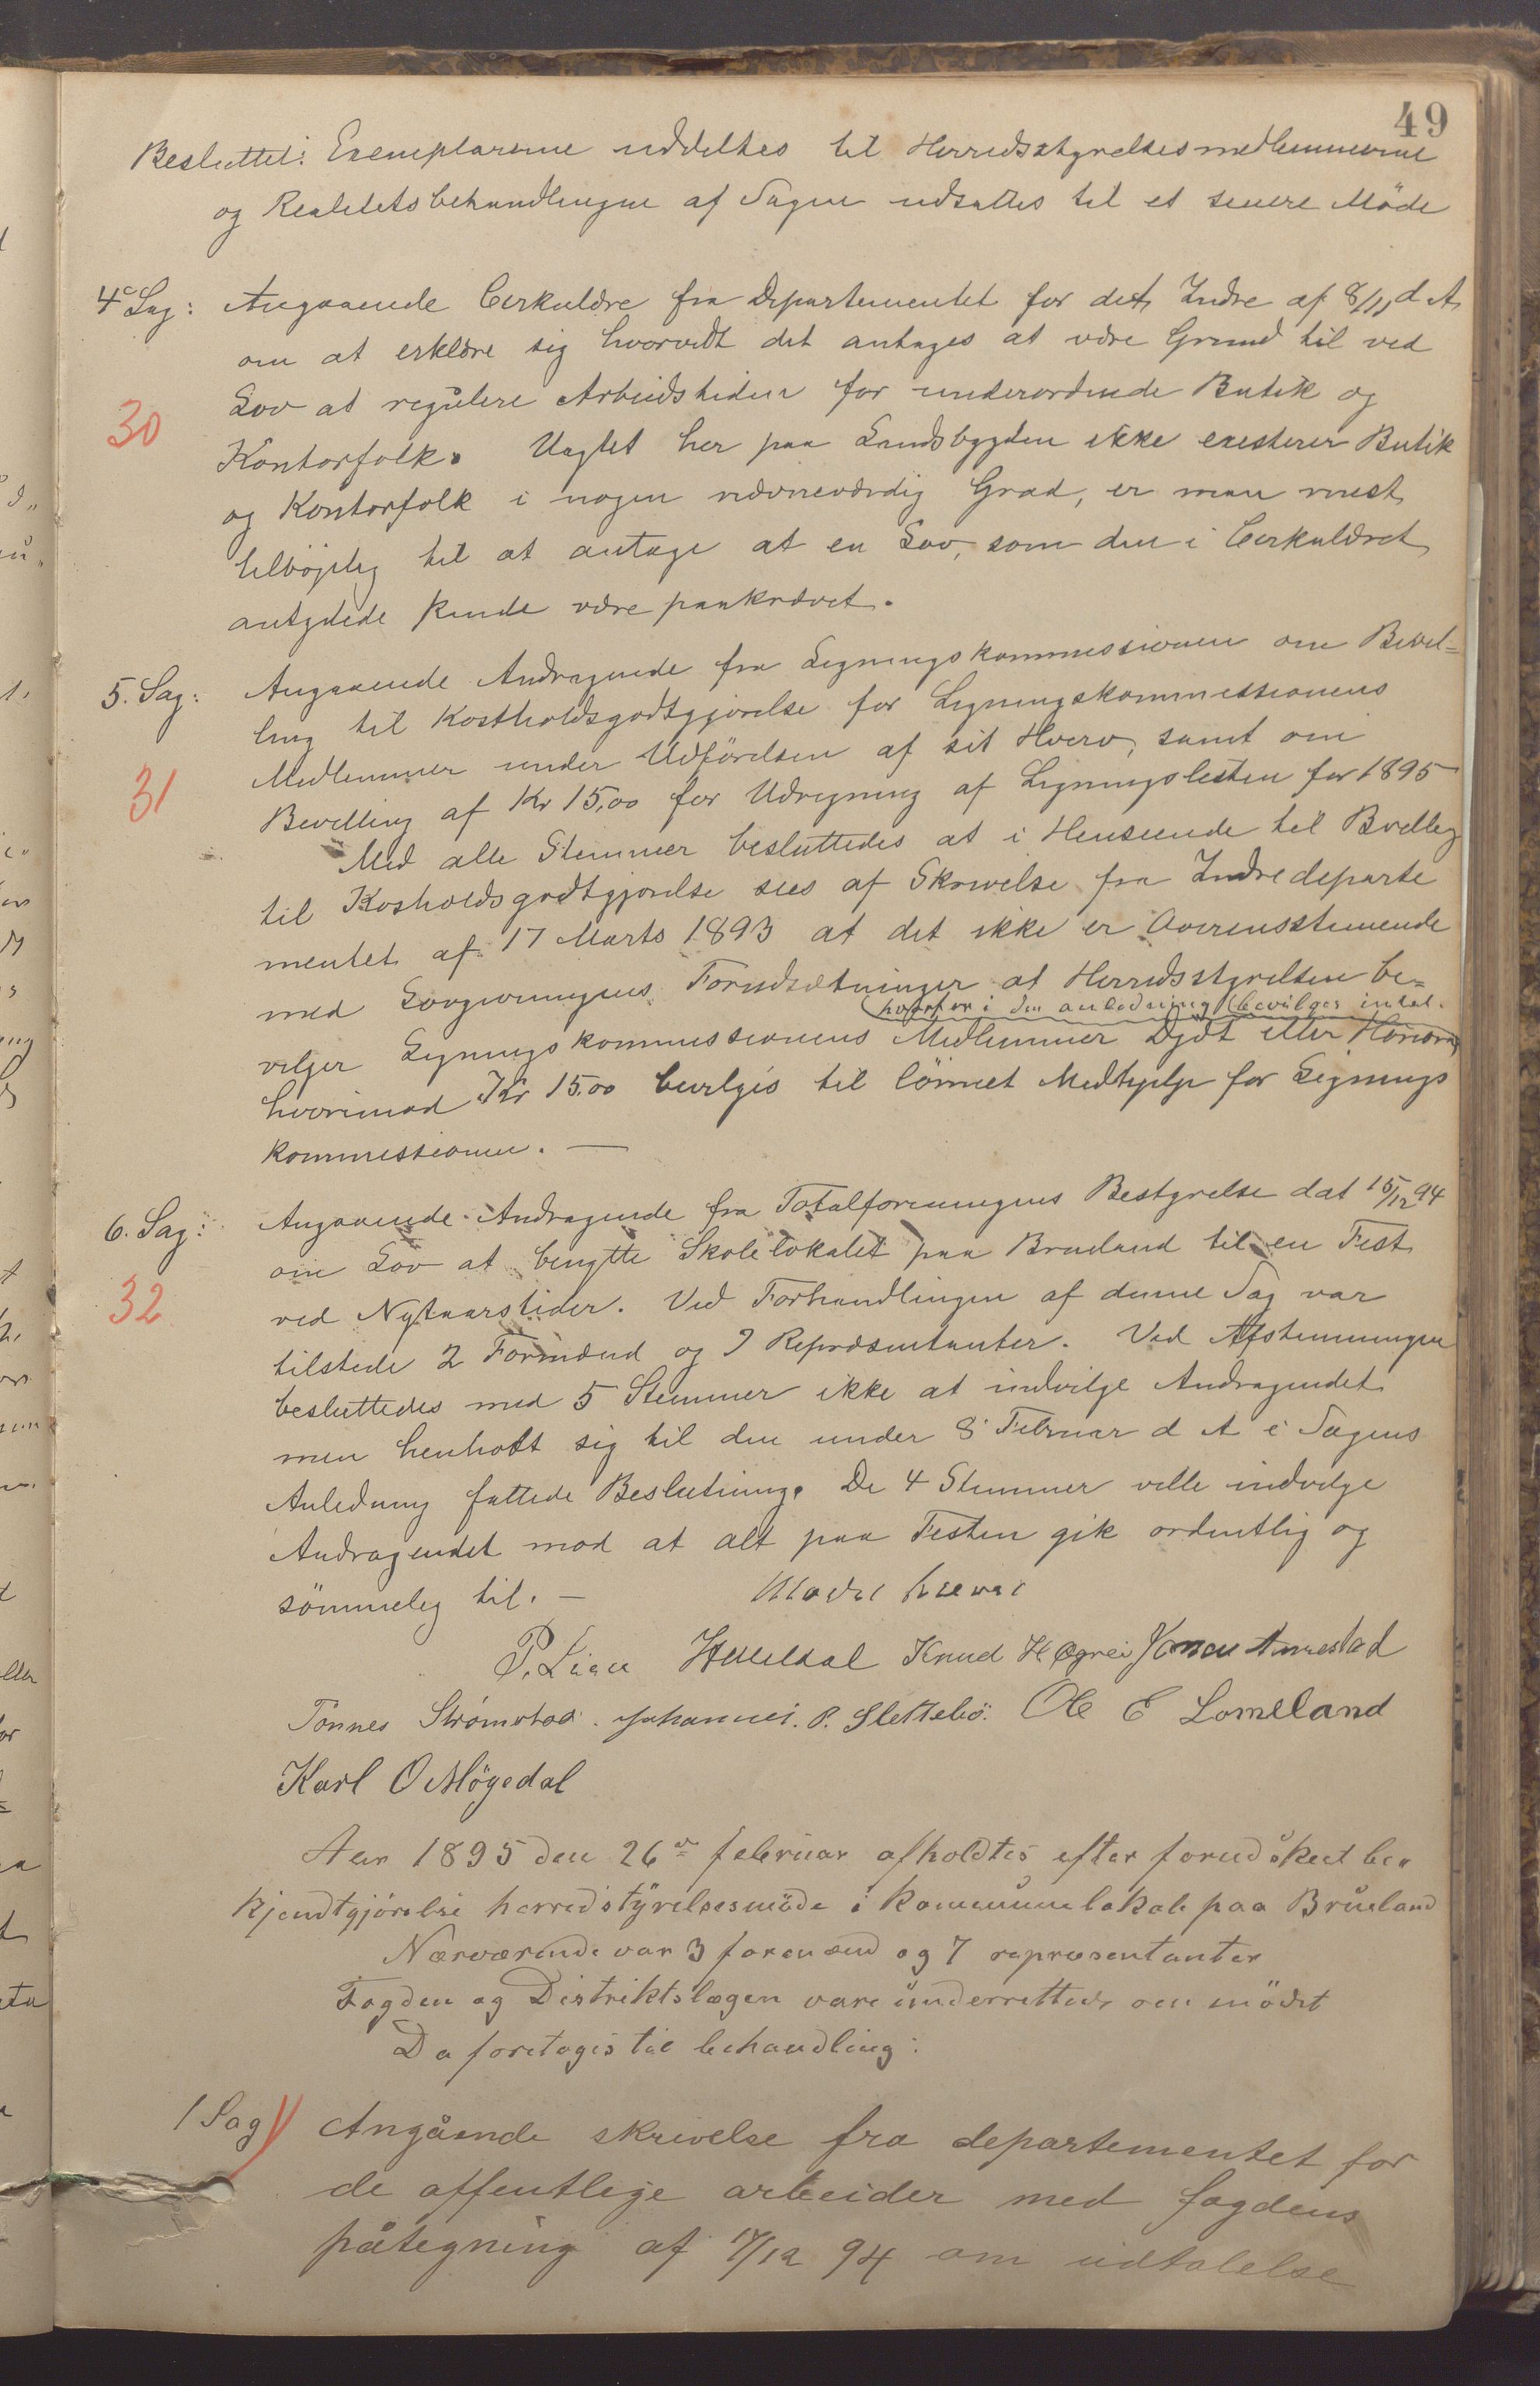 49
Besluttet: Exemplarerne uddeltes til Herredsstyrelsesmedlemmerne
og Realitetsbehandlingen af Sagen udsattes til et senere Møde
4e Sag: Angaaende Cirkulære fra Departementet for det Indre af 8/11 d A
om at erklære sig hvorvidt det antages at være Grund til ved
Lov at regulere Arbeidstiden for underordnede Butik og
30
Kontorfolk. Uagtet her paa Landsbygden ikke existerer Butik
og Kontorfolk i nogen nævneværdig Grad, er man mest
tilbøjelig til at antage at en Lov, som den i Cirkulæret
antydede kunde være paakrævet.
5. Sag: Angaaende Andragende fra Ligningskommissionen om Bevil=
ling til Kostholdsgodtgjørelse for Ligningskommissionens
Medlemmer under Udførelsen af sit Hverv, samt om
31
Bevilling af Kr 15,00 for Udregning af Ligningslisten for 1895
Med alle Stemmer besluttedes at i Henseende til Bevillig
til Kosholdsgodtgjørelse sees af Skrivelse fra Indredeparte
mentet af 17 Marts 1893 at det ikke er Overensstemende
med Lovgivningens Forudsætninger at Herredsstyrelsen be=
hvorfor i den anledning bevilges intet.
vilger Ligningskommissionens Medlemmer Diæt eller Honorar,
hvorimod Kr 15.00 bevilges til lønnet Medhjelp for Lignings
kommissionen. —
6. Sag: Angaaende Andragende fra Totalforeningens Bestyrelse dat 15/12 94
om Lov at benytte Skolelokalet paa Brueland til en Fest
32
ved Nytaarstider. Ved Forhandlingen af denne Sag var
tilstede 2 Formænd og 7 Repræsentanter. Ved Afstemningen
besluttedes med 5 Stemmer ikke at indvilge Andragendet
men henholdt sig til den under 8 Februar d A i Sagens
Anledning fattede Beslutning. De 4 Stemmer vilde indvilge
Andragendet mod at alt paa Festen gik ordentlig og
sømmelig til. — Mødet hævet
P. Lian Knud Hægrei Jonas Aarrestad
Tønnes Strømstad. Johannes. P. Slettebø. Ole E Lomeland
Karl O Møgedal
Aar 1895 den 26de februar afholdtes efter forud skeet be=
kjendtgjørelse herredstyrelsesmøde i kommunelokale paa Brueland
Nærværende var 3 formænd og 7 repræsentanter
Fogden og Distriktslægen vare underrettede om mødet
Da foretoges til behandling:
1 Sag) Angående skrivelse fra departementet for
de offentlige arbeider med fogdens
påtegning af 17/12 94 om udtalelse